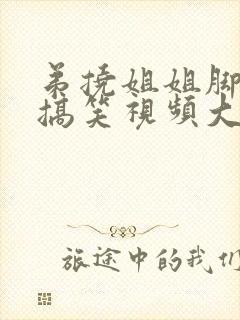 弟撓姐姐脚
搞笑視頻大
旅途中的我们